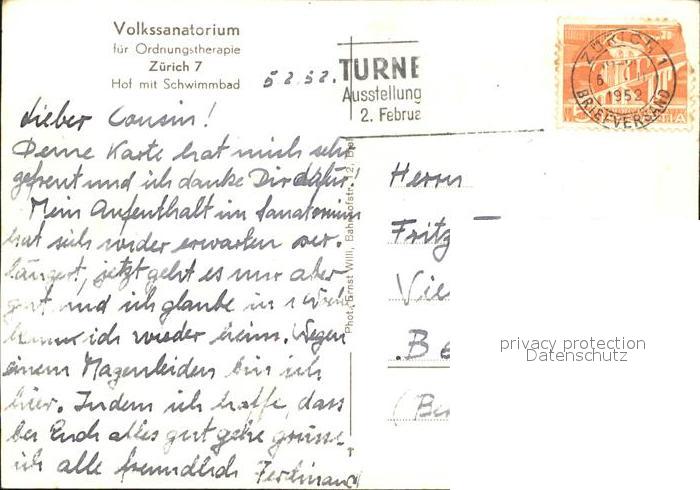 Volkssanatorium
für Ordnungstherapie
Zürich 7
Hof mit Schwimmbad
5 2. 52.
TURNE
Ausstellung
2. Februa
ZÜRICH 1
6
1952
BRIEFVERSAND
Lieber Cousin!
Deine Karte hat mich sehr
gefreut und ich danke Dir dafür!
Mein Aufenthalt im Sanatorium
hat sich wider erwarten ver-
längert, jetzt geht es mir aber
gut und ich glaube in 1 Woche
ich wieder heim. Wegen
einem Magenleiden bin ich
hier. Indem ich hoffe, dass
bei Euch alles gut gehe grüsse
ich alle freundlich Ferdinand
Phot. Ernst Willi, Bahnhofstr. 12,
Herrn
Fritz
Vie
Be
(Ber
privacy protection
Datenschutz